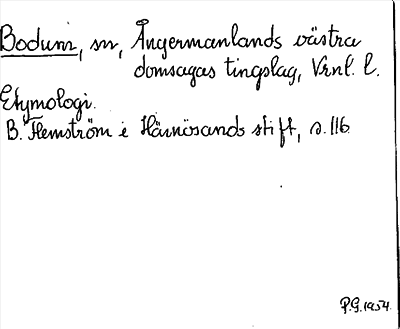 Bodum, sn, Ångermanlands västra
domsagas tingslag, Vrnl. l.
Etymologi.
B. Flemström i Härnösands stift, s. 116
P.G. 1954.